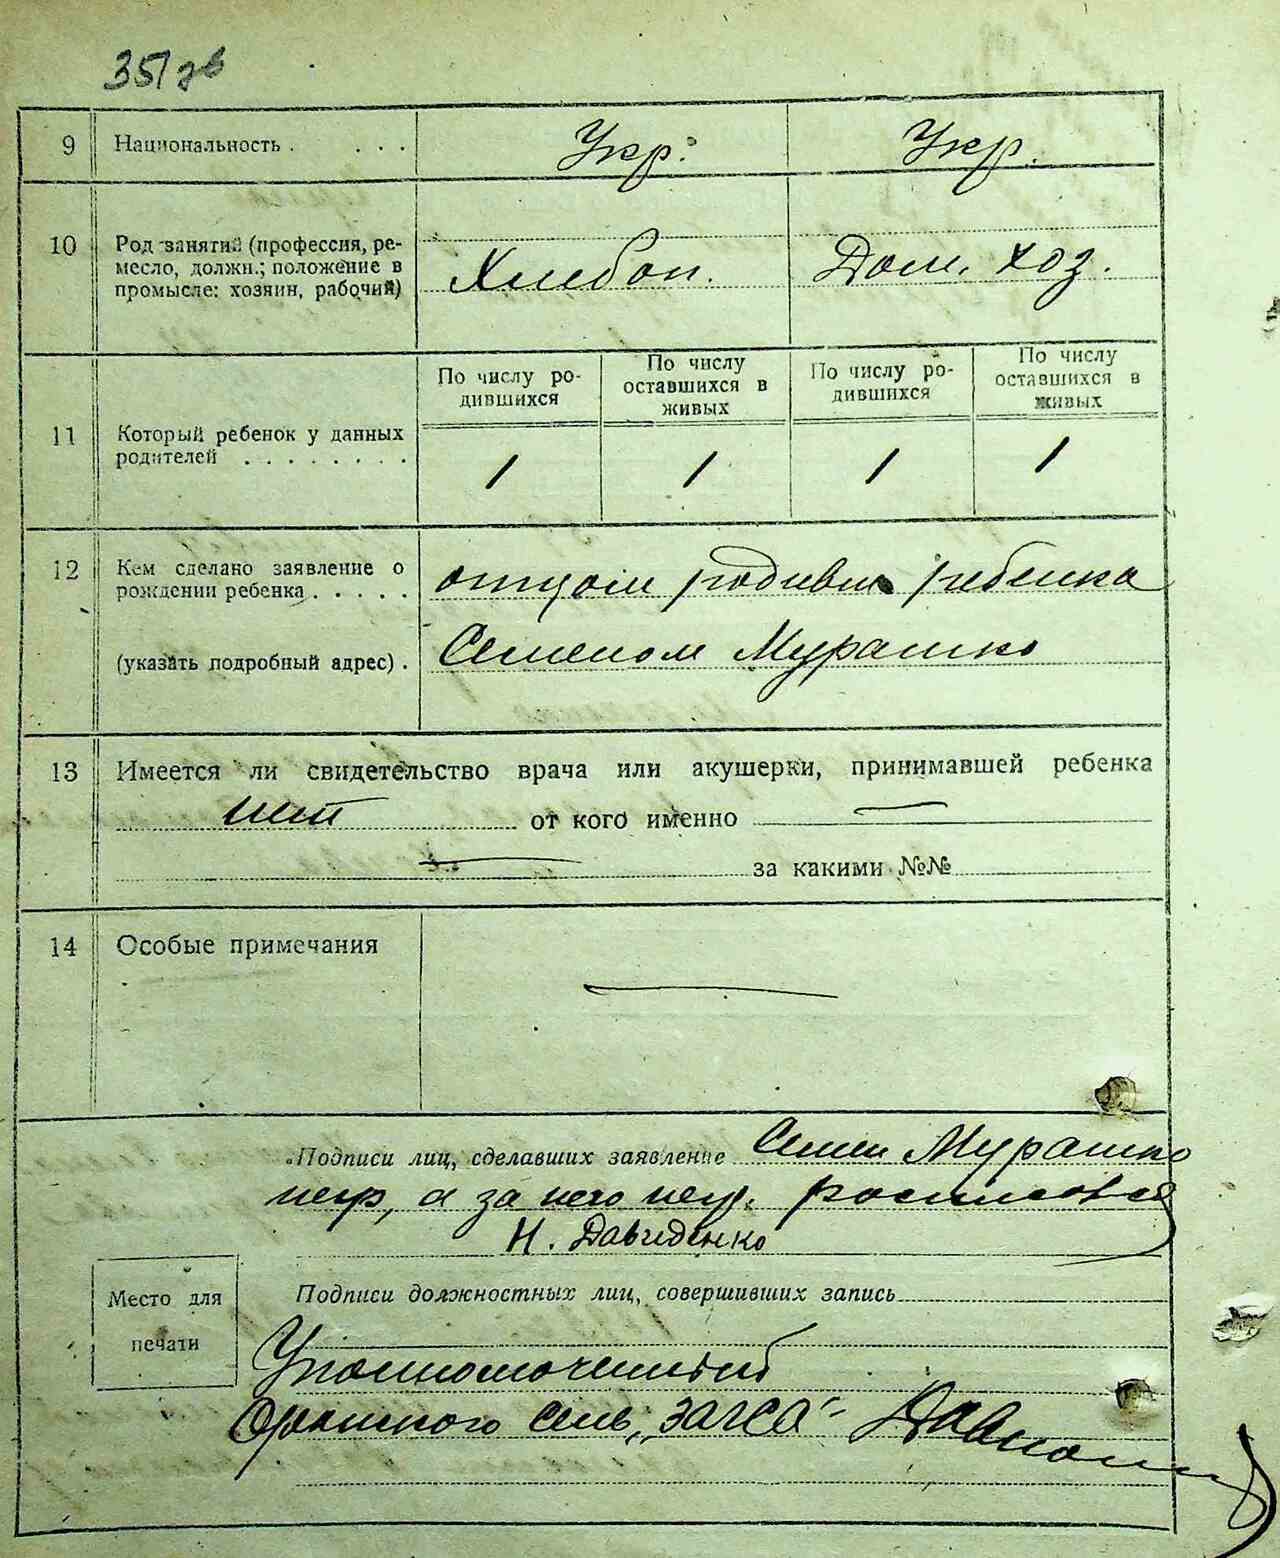 351 зв
9 Национальность . . . . Укр. Укр.
10 Род занятий (профессия, ре-
месло, должн.; положение в
промысле: хозяин, рабочий)
Хлебоп. Дом. хоз.
По числу ро-
дившихся
По числу
оставшихся в
живых
По числу ро-
дившихся
По числу
оставшихся в
живых
11 Который ребенок у данных
родителей . . . . . . . .
1 1 1 1
12 Кем сделано заявление о
рождении ребенка . . . . .
отцом родивш. ребенка
(указать подробный адрес) . Семеном Мурашко
13 Имеется ли свидетельство врача или акушерки, принимавшей ребенка
нет от кого именно —
— за какими №№
14 Особые примечания —
Подписи лиц, сделавших заявление Семен Мурашко
негр, а за него негр. росписовся
Н. Давиденко
Место для
печати
Подписи должностных лиц, совершивших запись
Уполномоченный
сель „загса“-